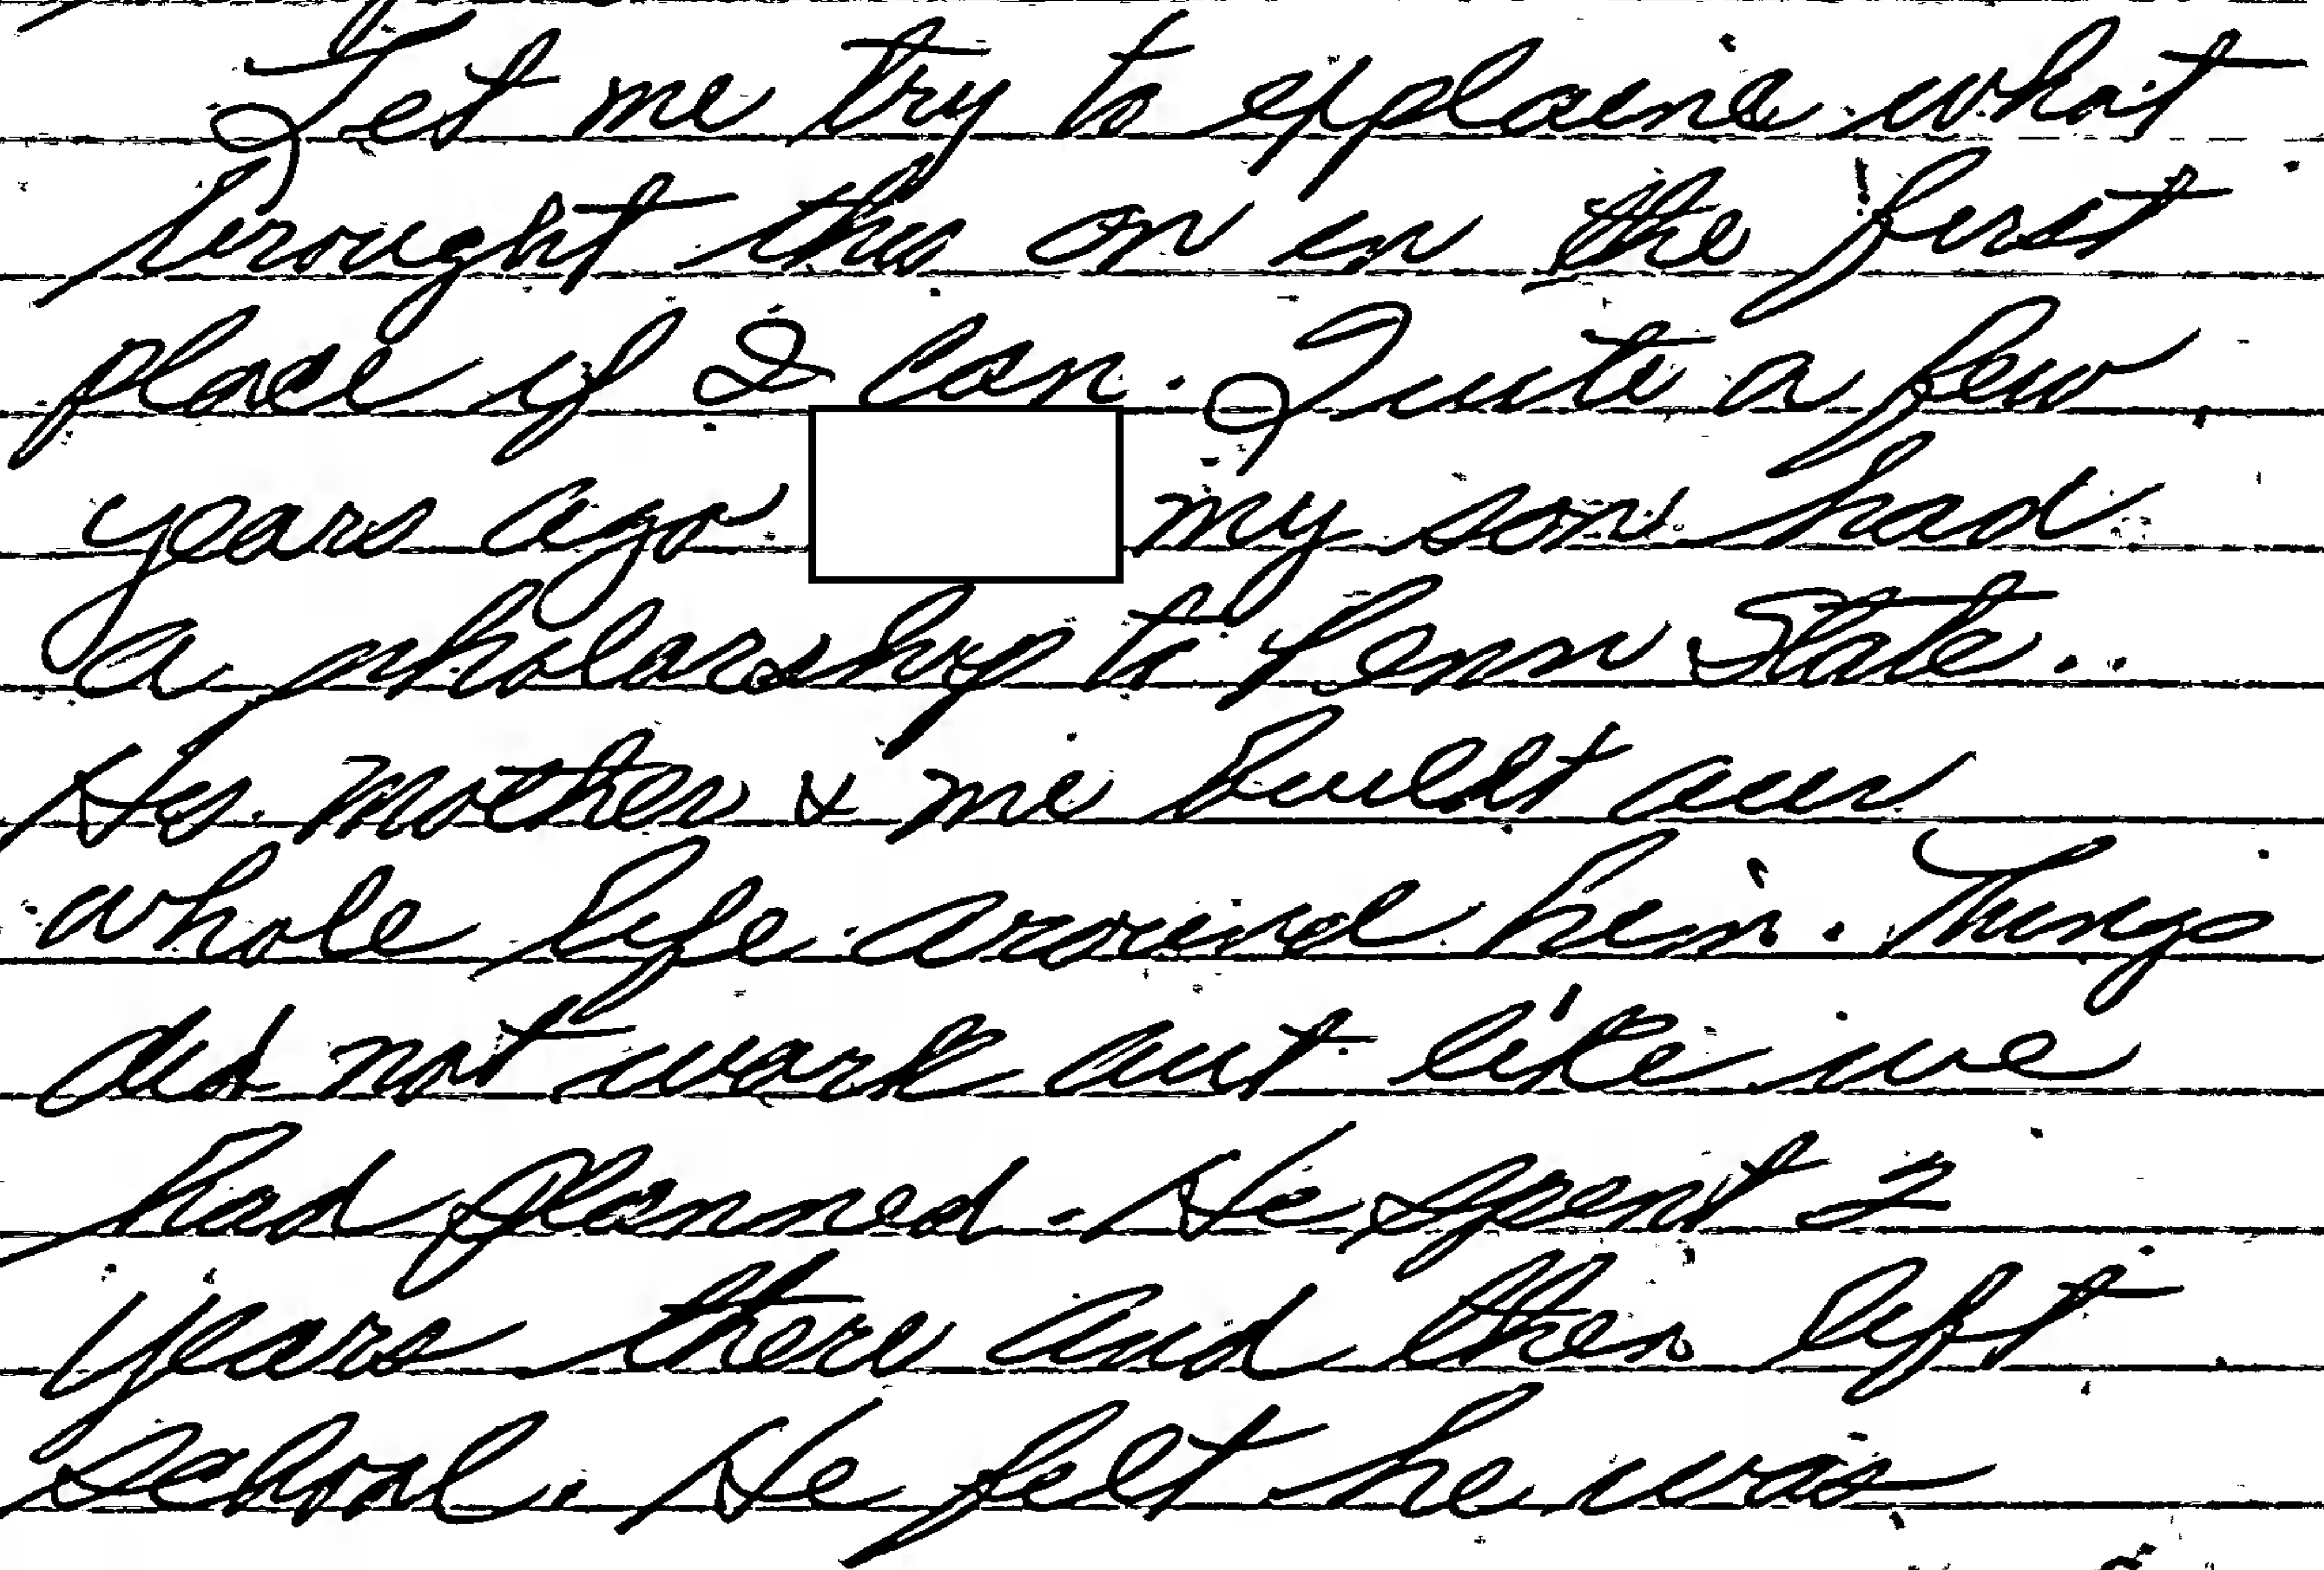 Let me try to explaine what
brought this on in the first
place if I can. Quite a few
years ago my son had
a scholarship to Penn State..
His Mother & me buildt our
whole life around him. Things
did not work out like we
had planned. He spent 2
years there and then left
School. He felt he was